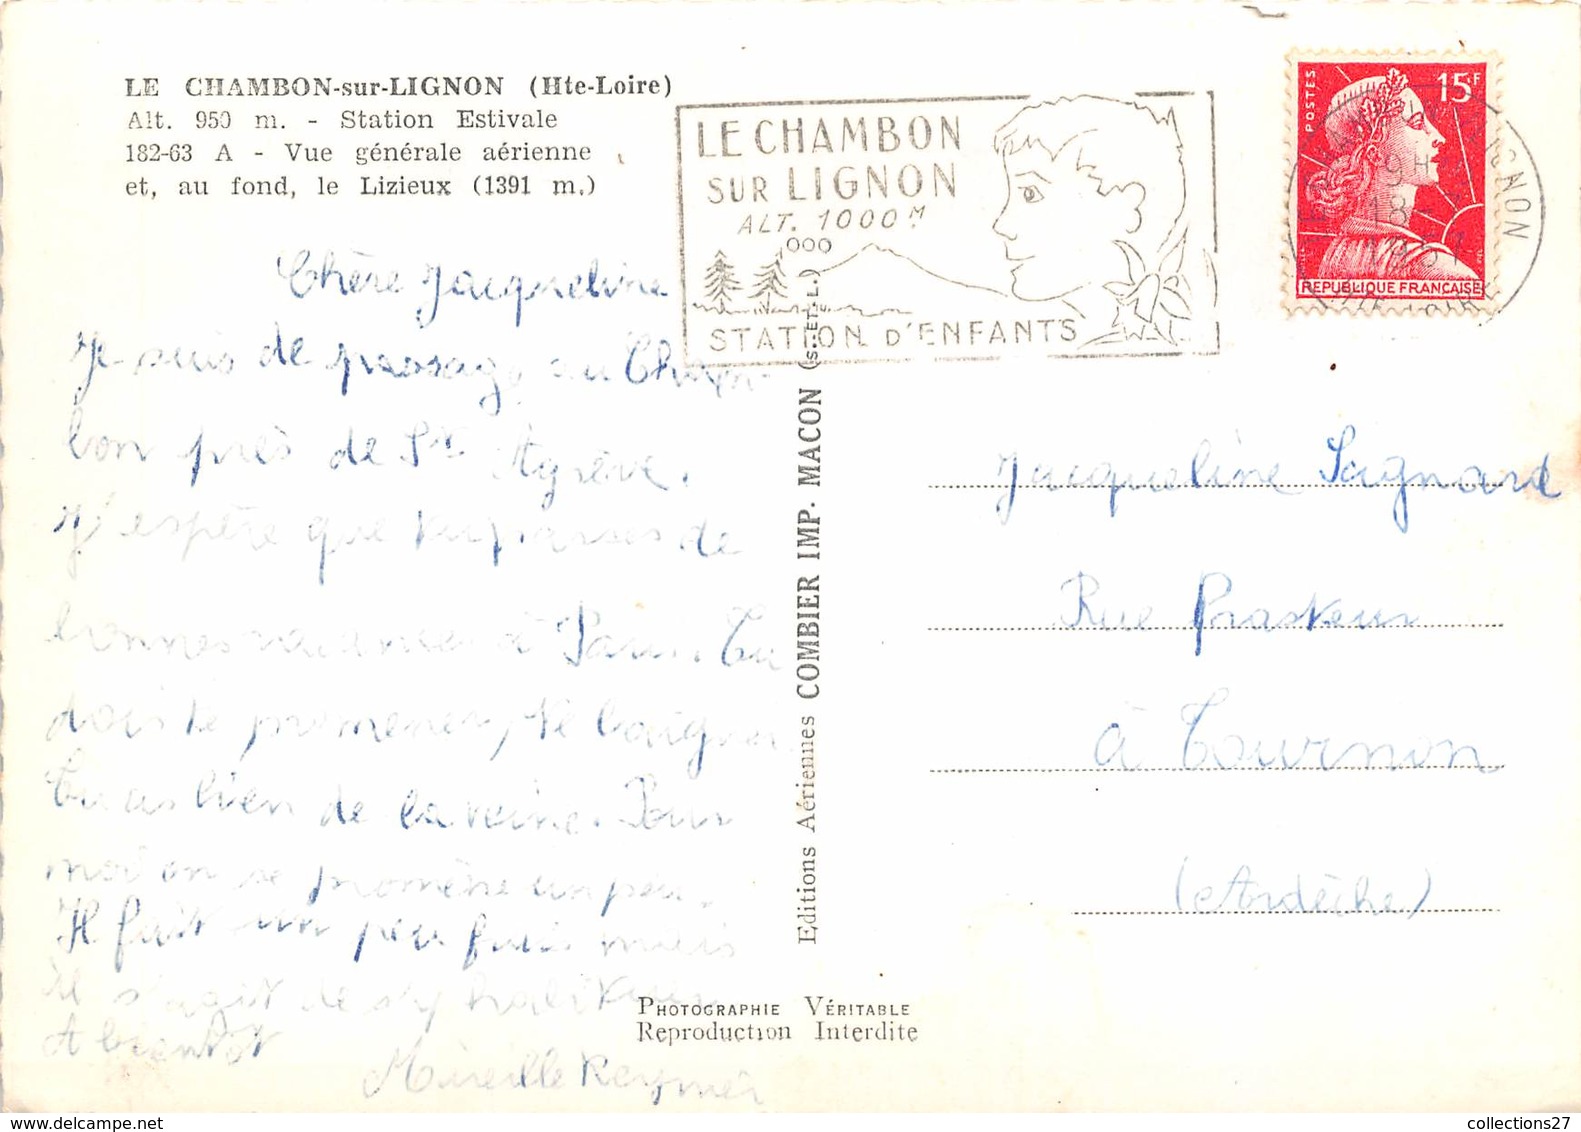 LE CHAMBON-sur-LIGNON (Hte-Loire)
Alt. 950 m. - Station Estivale
182-63 A - Vue générale aérienne
et, au fond, le Lizieux (1391 m.)
LE CHAMBON
SUR LIGNON
ALT. 1000 M
STATION D'ENFANTS
POSTES
15F
REPUBLIQUE FRANÇAISE
9H
18
Chère Jacqueline
Je suis de passage au Cham-
bon près de St Agrève.
J'espère que tu passes de
bonnes vacances à Paris. Tu
dois te promener, te baigner.
Tu as bien de la veine. Pour
moi on se promène un peu.
Il fait un peu froid mais
il s'agit de s'y habituer
A bientôt
Mireille
Editions Aériennes COMBIER IMP. MACON (S.-ET-L.) OOO
Jacqueline Sagnard
Rue Pasteur
à Tournon
(Ardèche)
PHOTOGRAPHIE VÉRITABLE
Reproduction Interdite
collections27